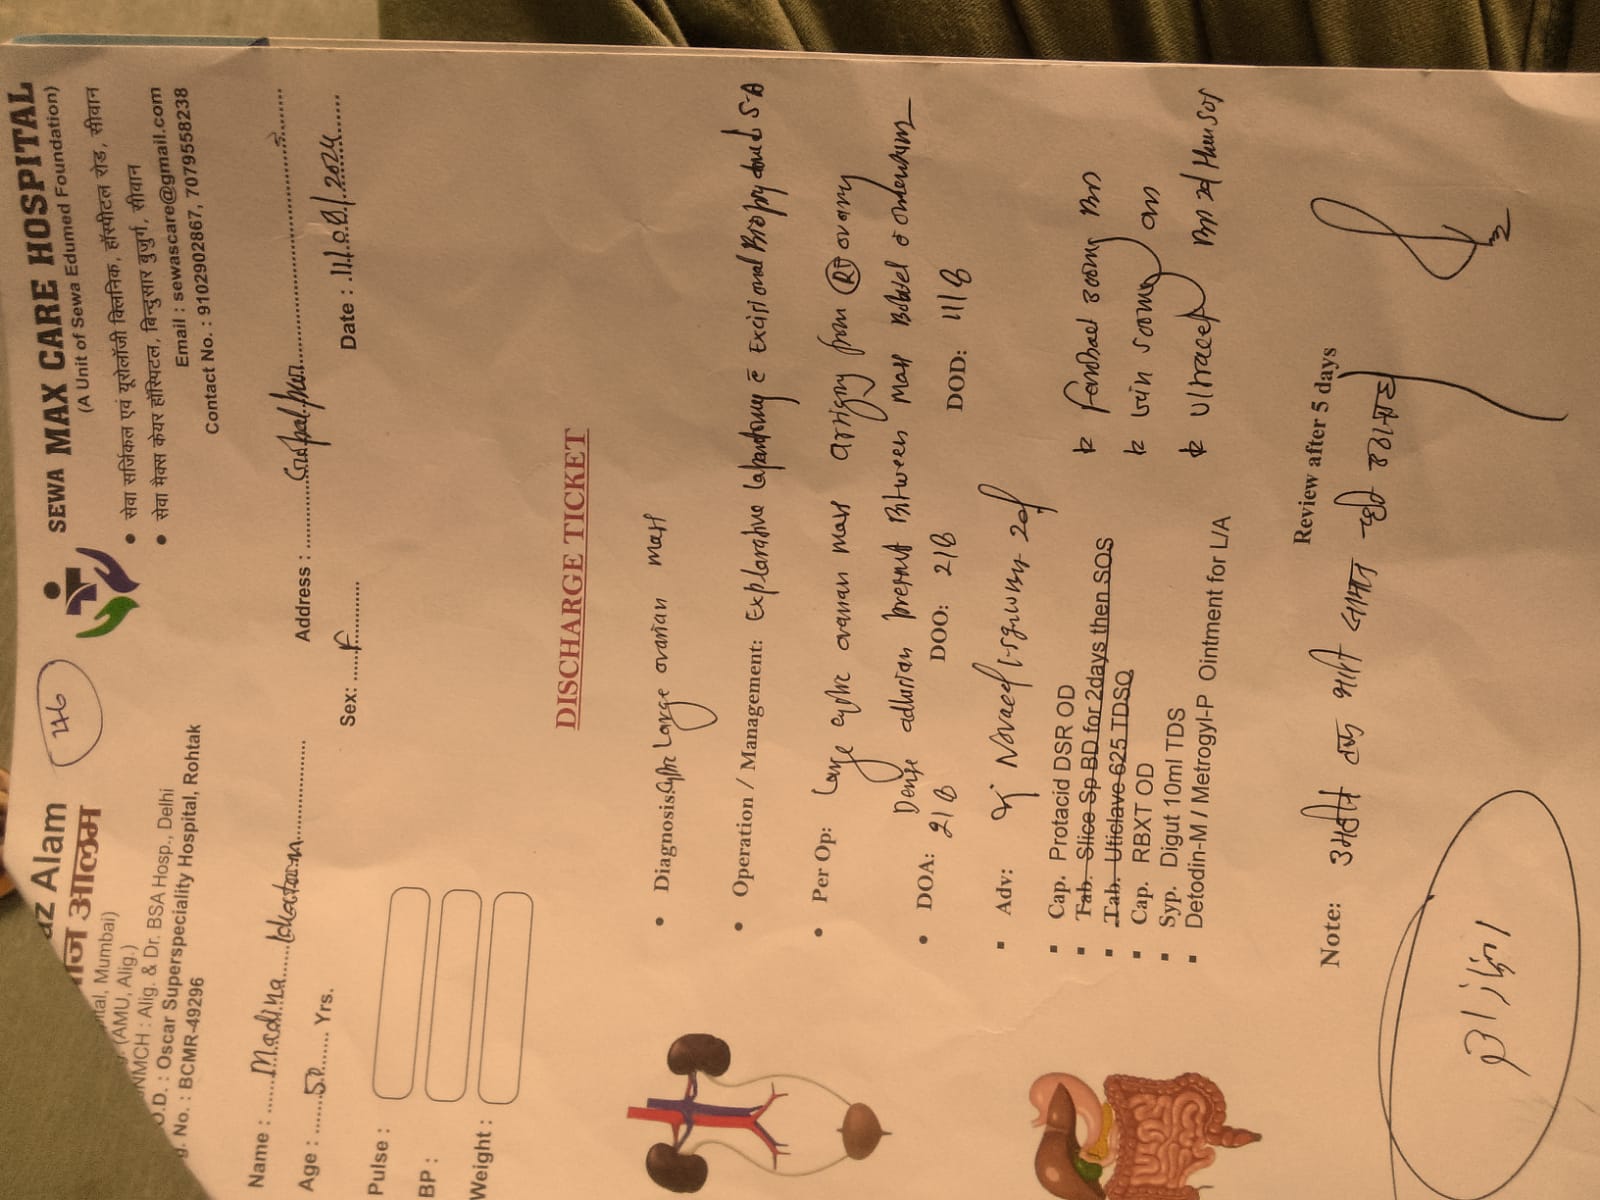 az Alam
आलम
ital, Mumbai)
(AMU, Alig.)
NMCH : Alig. & Dr. BSA Hosp., Delhi
O.D. : Oscar Superspeciality Hospital, Rohtak
g. No. : BCMR-49296
SEWA MAX CARE HOSPITAL
(A Unit of Sewa Edumed Foundation)
• सेवा सर्जिकल एवं यूरोलॉजी क्लिनिक, हॉस्पीटल रोड, सीवान
• सेवा मैक्स केयर हॉस्पिटल, बिन्दुसार बुजुर्ग, सीवान
Email : sewascare@gmail.com
Contact No. : 9102902867, 7079558238
Name : Madina Khatoon
Address : Gopalpur
Age : 50 Yrs.
Sex: F
Date : 11.08.2024
Pulse :
BP :
Weight :
DISCHARGE TICKET
• Diagnosis: Cystic Large ovarian mass
• Operation / Management: Explorative laparotomy c̄ Excisional Biopsy done S-A
• Per Op: Large cystic ovarian mass arising from Rt ovary
Dense adhesion present Between mass Bowel & omentum
• DOA: 2/8 DOO: 2/8 DOD: 11/8
Adv:
Cap. Protacid DSR OD
Tab. Slice Sp BD for 2days then SOS
Tab. Uticlave 625 TDSO
Cap. RBXT OD
Syp. Digut 10ml TDS
Detodin-M / Metrogyl-P Ointment for L/A
200mg
500mg
Ultracet
Review after 5 days
Note: